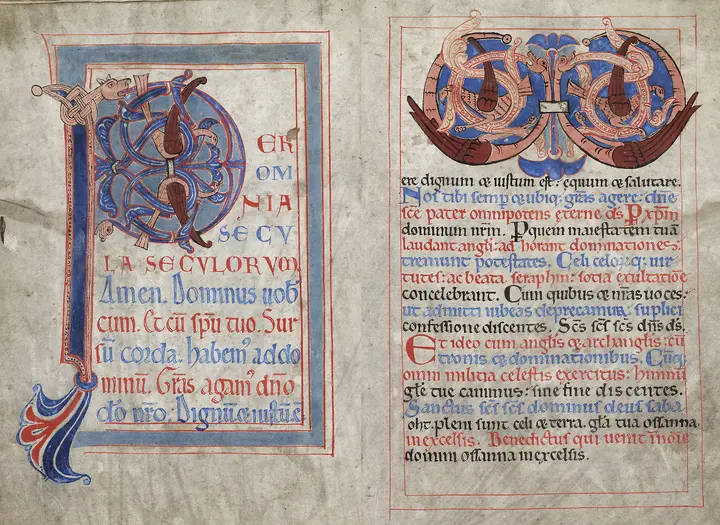 P
ER
OM
NIA
SECV
LA SECVLORVM
Amen. Dominus uob
cum. Et cū spū tuo. Sur
sū corda. habem᷒ addo
minū. Grās agam᷒ dño
dō nr̄o. Dignū & iustū ē.
ere dignum & iustum est : equum & salutare.
Nos tibi semp̄ & ubiq; grās agere : dñe
sc̄e pater omnipotens eterne ds̄. P xp̄m
dominum nr̄m. P quem maiestatem tuā
laudant angl̄i : adorant dominationes :
tremunt potestates. Celi celorūq; uir
tutes : ac beata seraphin : sotia exultatiōe
concelebrant. Cum quibus & nr̄as uoces :
ut admitti iubeas deprecamur : suplici
confessione dicentes. Sc̄s sc̄s sc̄s dñs ds̄.
Et ideo cum angl̄is & archangl̄is : cū
tronis & dominationibus. Cūq;
omni militia celestis exercitus : hūmū
gl̄e tue canimus : sine fine dicentes.
Sanctus sc̄s sc̄s dominus deus saba
oht. pleni sunt celi & terra. gl̄a tua ossanna
in excelsis. Benedictus qui uenit īnōīe
domini ossanna in excelsis.